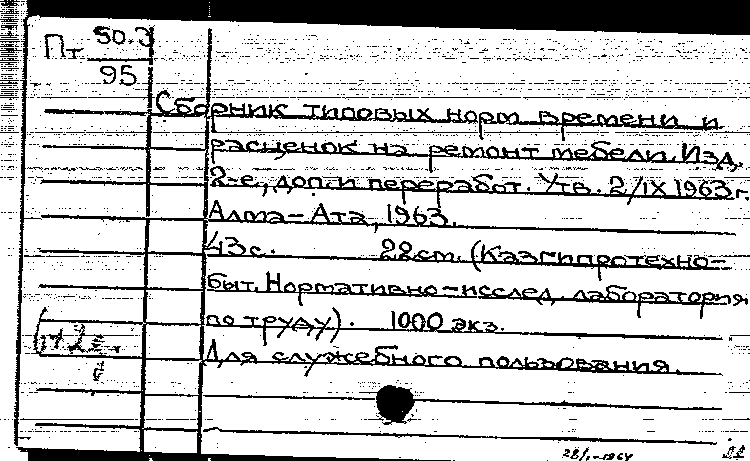 Пт 50.3
95
Сборник типовых норм времени и
расценок на ремонт мебели. Изд.
2-е, доп. и переработ. Утв. 2/IX 1963 г.
Алма-Ата, 1963.
43 с. 22 см. (Казгипротехно-
быт. Нормативно-исслед. лаборатория
по труду). 1000 экз.
Для служебного пользования.
28/I-1964